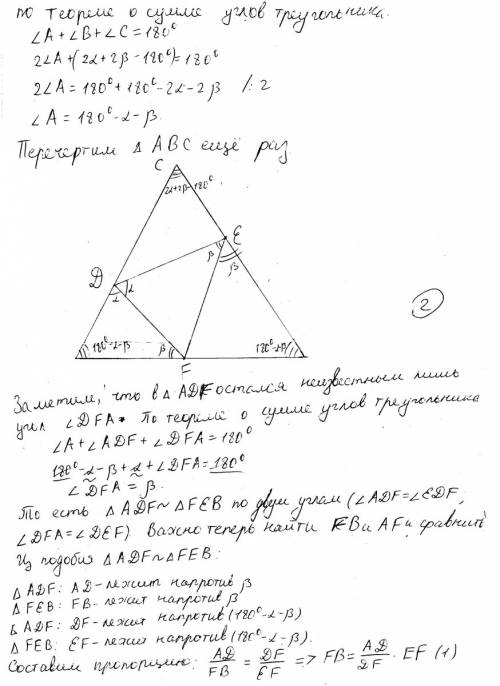 по теореме о сумме углов треугольника.
∠A+∠B+∠C=180°
2∠A+(2α+2β-180°)=180°
2∠A=180°+180°-2α-2β /:2
∠A=180°-α-β.
Перечертим Δ ABC ещё раз
C
2α+2β-180°
E
β
β
D
α
α
2
180°-α-β
β
180°-α-β
F
Заметим, что в Δ ADF остался неизвестным лишь
угол ∠DFA. По теореме о сумме углов треугольника
∠A+∠ADF+∠DFA=180°
180°-α-β+α+∠DFA=180°
∠DFA=β.
То есть ΔADF~ΔFEB по двум углам (∠ADF=∠EDF,
∠DFA=∠DEF). Важно теперь найти FB и AF и сравнить
Из подобия ΔADF~ΔFEB:
ΔADF: AD-лежит напротив β
ΔFEB: FB-лежит напротив β
ΔADF: DF-лежит напротив (180°-α-β)
ΔFEB: EF-лежит напротив (180°-α-β).
Составим пропорцию: AD/FB = DF/EF => FB= AD/DF · EF (1)